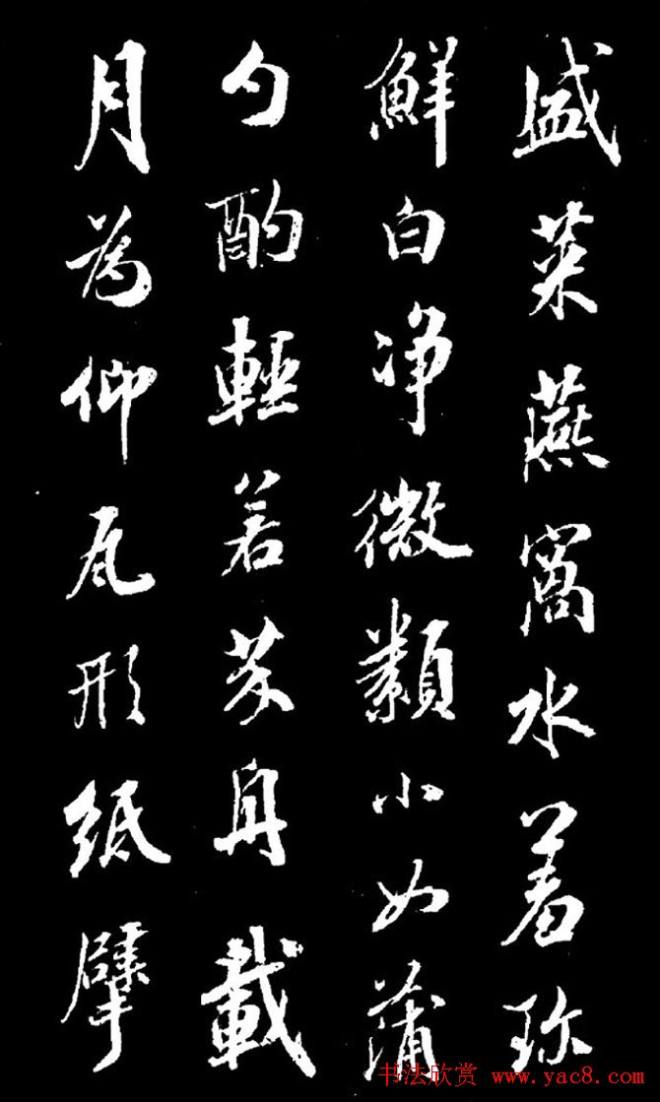 盛菜燕窩水羞珎
鮮白净微纇小如蒲
勺酌輕若芥舟載
月為仰瓦形紙擘
书法欣赏 www.yac8.com